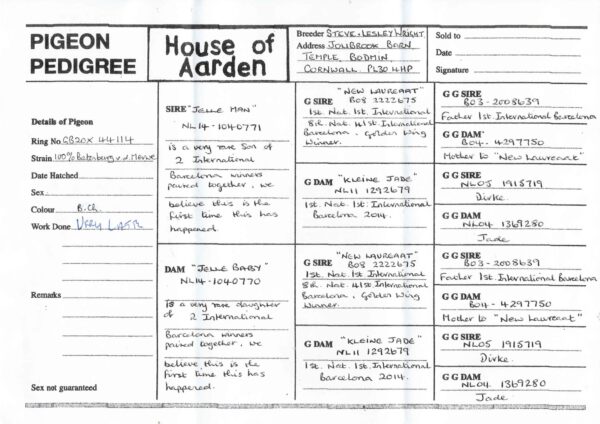 PIGEON
PEDIGREE
House of
Aarden
Breeder STEVE + LESLEY WRIGHT
Address JOLIBROOK BARN,
TEMPLE, BODMIN,
CORNWALL PL30 4HP
Sold to
Date
Signature
Details of Pigeon
Ring No GB20X 44114
Strain 100%
Date Hatched
Sex
Colour B.Ch
Work Done
Remarks
Sex not guaranteed
SIRE "JELLE MAN"
NL14-1040771
is a very rare Son of
2 International
Barcelona winners
paired together, we
believe this is the
first time this has
happened.
DAM "JELLE BABY"
NL14-1040770
is a very rare daughter
of 2 International
Barcelona winners
paired together, we
believe this is the
first time this has
happened.
"NEW LAUREAAT"
G SIRE B08 2222675
1st. Nat. 1st. International
8th. Nat. 41st International
Barcelona, Golden Wing
Winner.
G DAM "KLEINE JADE"
NL11 1292679
1st. Nat. 1st. International
Barcelona 2014.
"NEW LAUREAAT"
G SIRE B08 2222675
1st. Nat. 1st. International
8th. Nat. 41st International
Barcelona, Golden Wing
Winner.
G DAM "KLEINE JADE"
NL11 1292679
1st. Nat. 1st. International
Barcelona 2014.
G G SIRE
B03-2008639
Father 1st. International Barcelona
G G DAM
B04-4297750
Mother to "New Laureaat"
G G SIRE
NL05 1915719
Dirke.
G G DAM
NL04 1369280
Jade
G G SIRE
B03-2008639
Father 1st. International Barcelona
G G DAM
B04-4297750
Mother to "New Laureaat"
G G SIRE
NL05 1915719
Dirke.
G G DAM
NL04 1369280
Jade